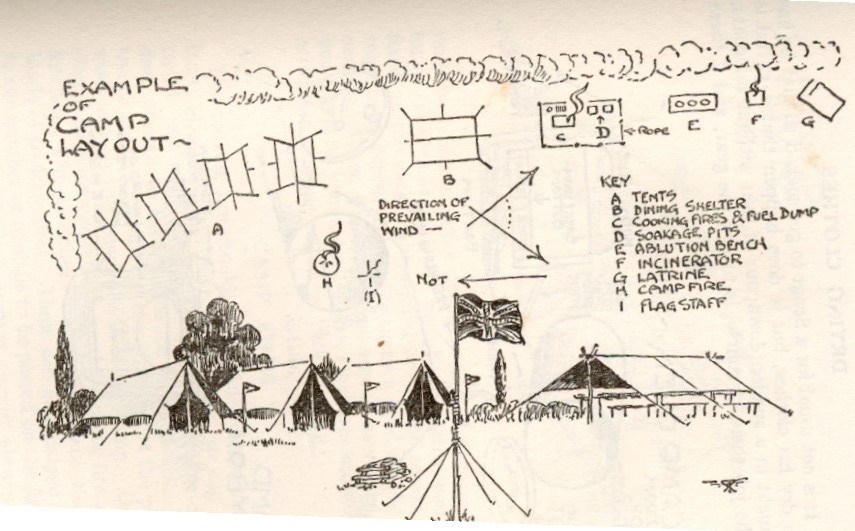 EXAMPLE
OF
CAMP
LAYOUT~
A
B
C
D
←ROPE
E
F
G
DIRECTION OF
PREVAILING
WIND —
H
(I)
NOT
KEY
A TENTS
B DINING SHELTER
C COOKING FIRES & FUEL DUMP
D SOAKAGE PITS
E ABLUTION BENCH
F INCINERATOR
G LATRINE
H CAMP FIRE
I FLAGSTAFF
DRYING CLOTHES